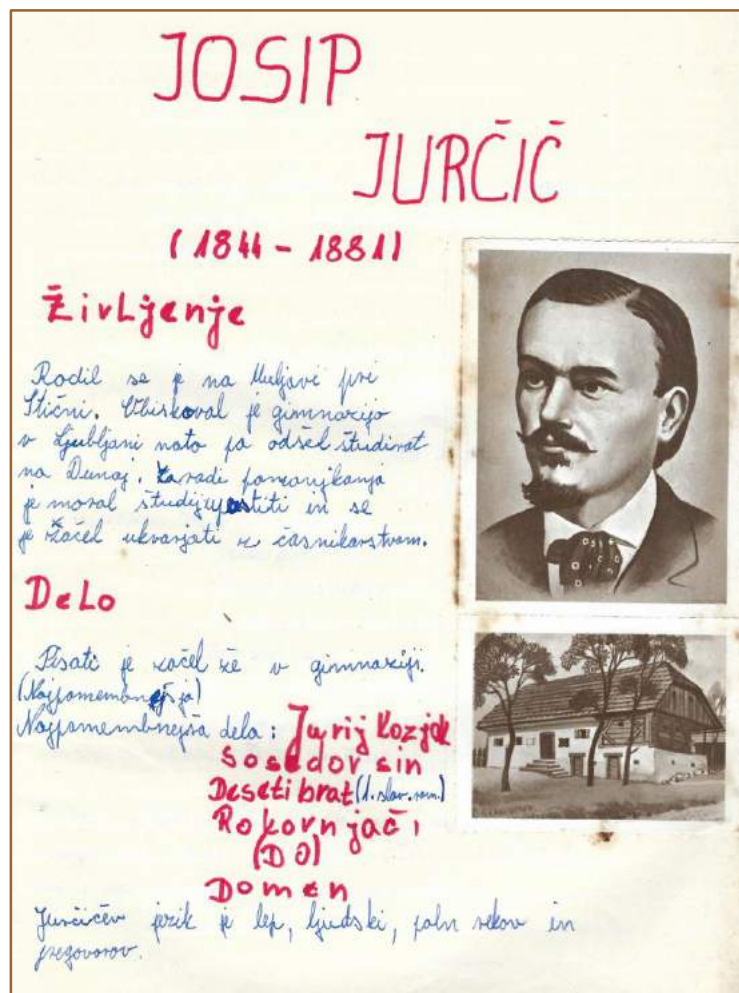 JOSIP
JURČIČ
(1844 - 1881)
Življenje
Rodil se je na Muljavi pri
Stični. Obiskoval je gimnazijo
v Ljubljani nato pa odšel študirat
na Dunaj. Zaradi pomanjkanja
je moral študij opustiti in se
je začel ukvarjati z časnikarstvom.
Delo
Pisati je začel že v gimnaziji.
(Najpomembnejša)
Najpomembnejša dela: Jurij Kozjak
Sosedov sin
Deseti brat (1. slov. rom.)
Rokovnjači
Domen
Jurčičev jezik je lep, ljudski, poln rekov in
pregovorov.